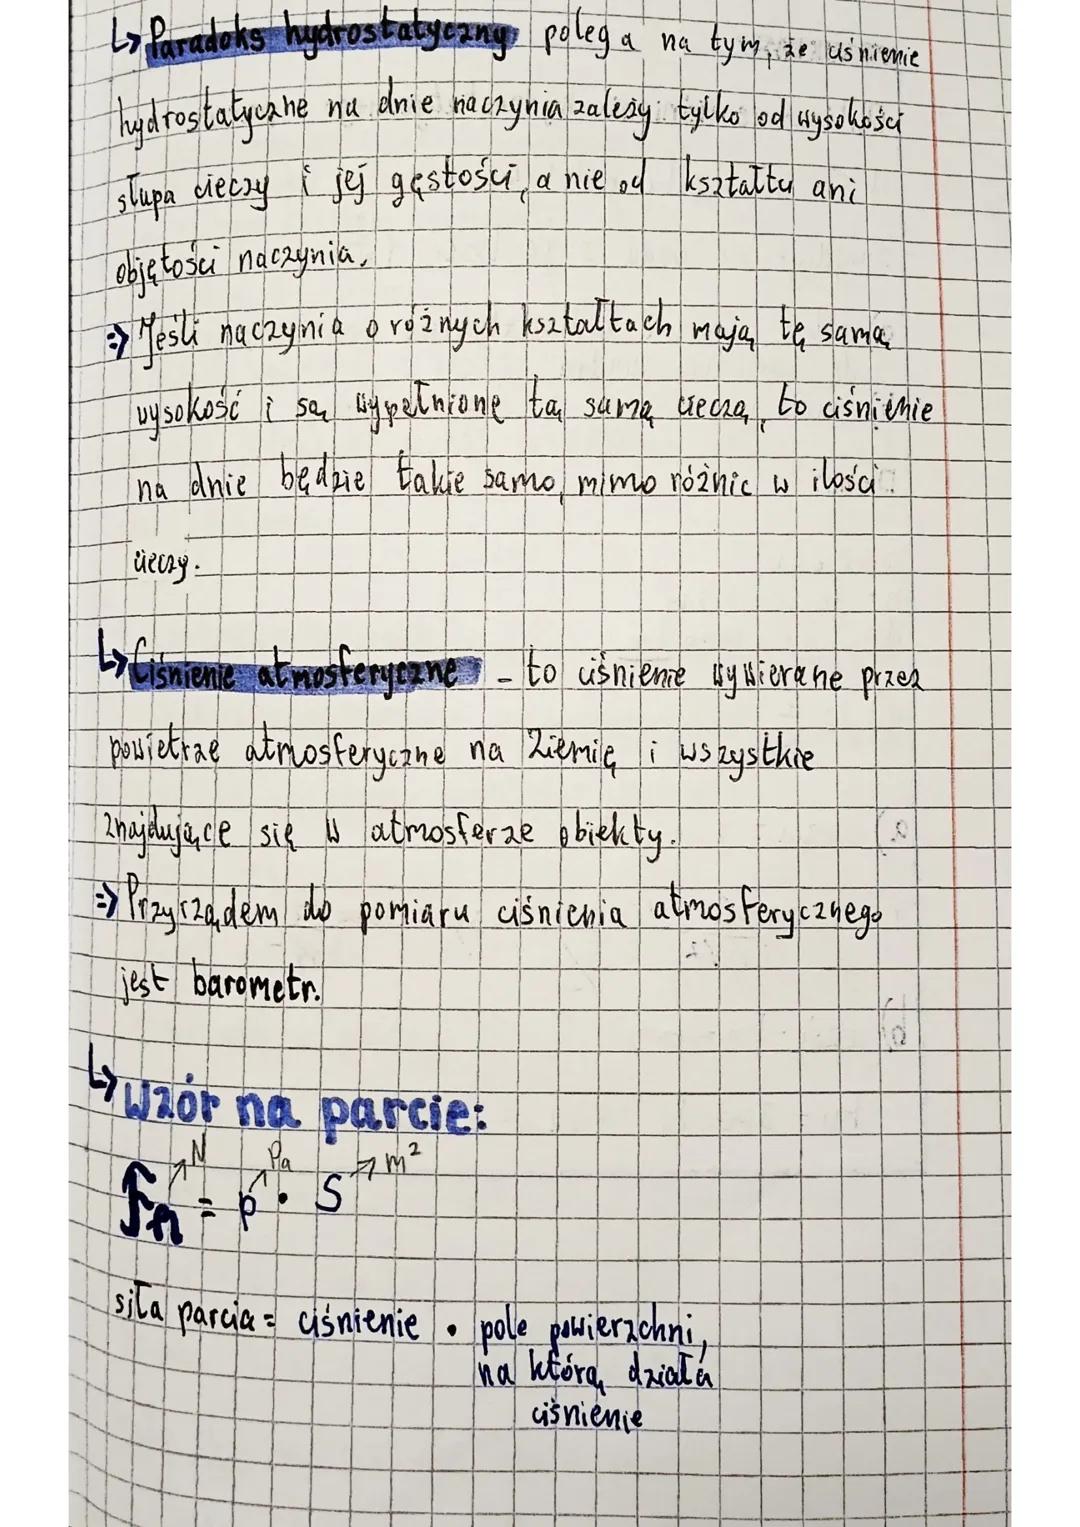 ↳ Paradoks hydrostatyczny polega na tym, że ciśnienie
hydrostatyczne na dnie naczynia zależy tylko od wysokości
słupa cieczy i jej gęstości, a nie od kształtu ani
objętości naczynia.
=> Jeśli naczynia o różnych kształtach mają tę samą
wysokość i są wypełnione tą samą cieczą, to ciśnienie
na dnie będzie takie samo, mimo różnic w ilości
cieczy.
↳ Ciśnienie atmosferyczne - to ciśnienie wywierane przez
powietrze atmosferyczne na Ziemię i wszystkie
znajdujące się w atmosferze obiekty.
=> Przyrządem do pomiaru ciśnienia atmosferycznego
jest barometr.
↳ wzór na parcie:
N Pa m²
Fn = p · S
siła parcia = ciśnienie · pole powierzchni,
na którą działa
ciśnienie